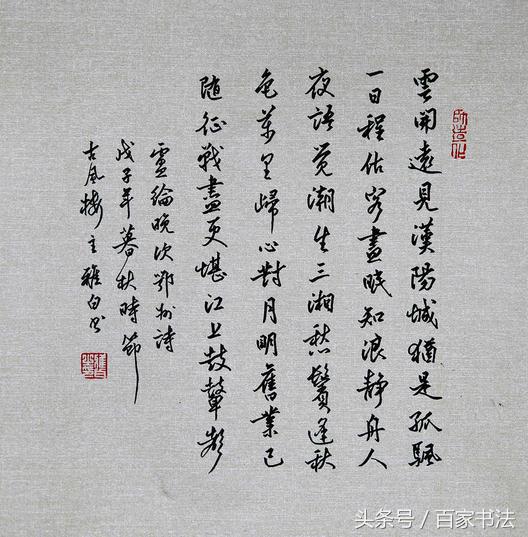 師造化
雲開遠見漢陽城猶是孤颿
一日程估客晝眠知浪靜舟人
夜語覺潮生三湘愁鬢逢秋
色萬里歸心對月明舊業已
随征戰盡更堪江上鼓鼙聲
盧綸晚次鄂州詩
戊子年暮秋時節
古風樓主雅白书
头条号／百家书法